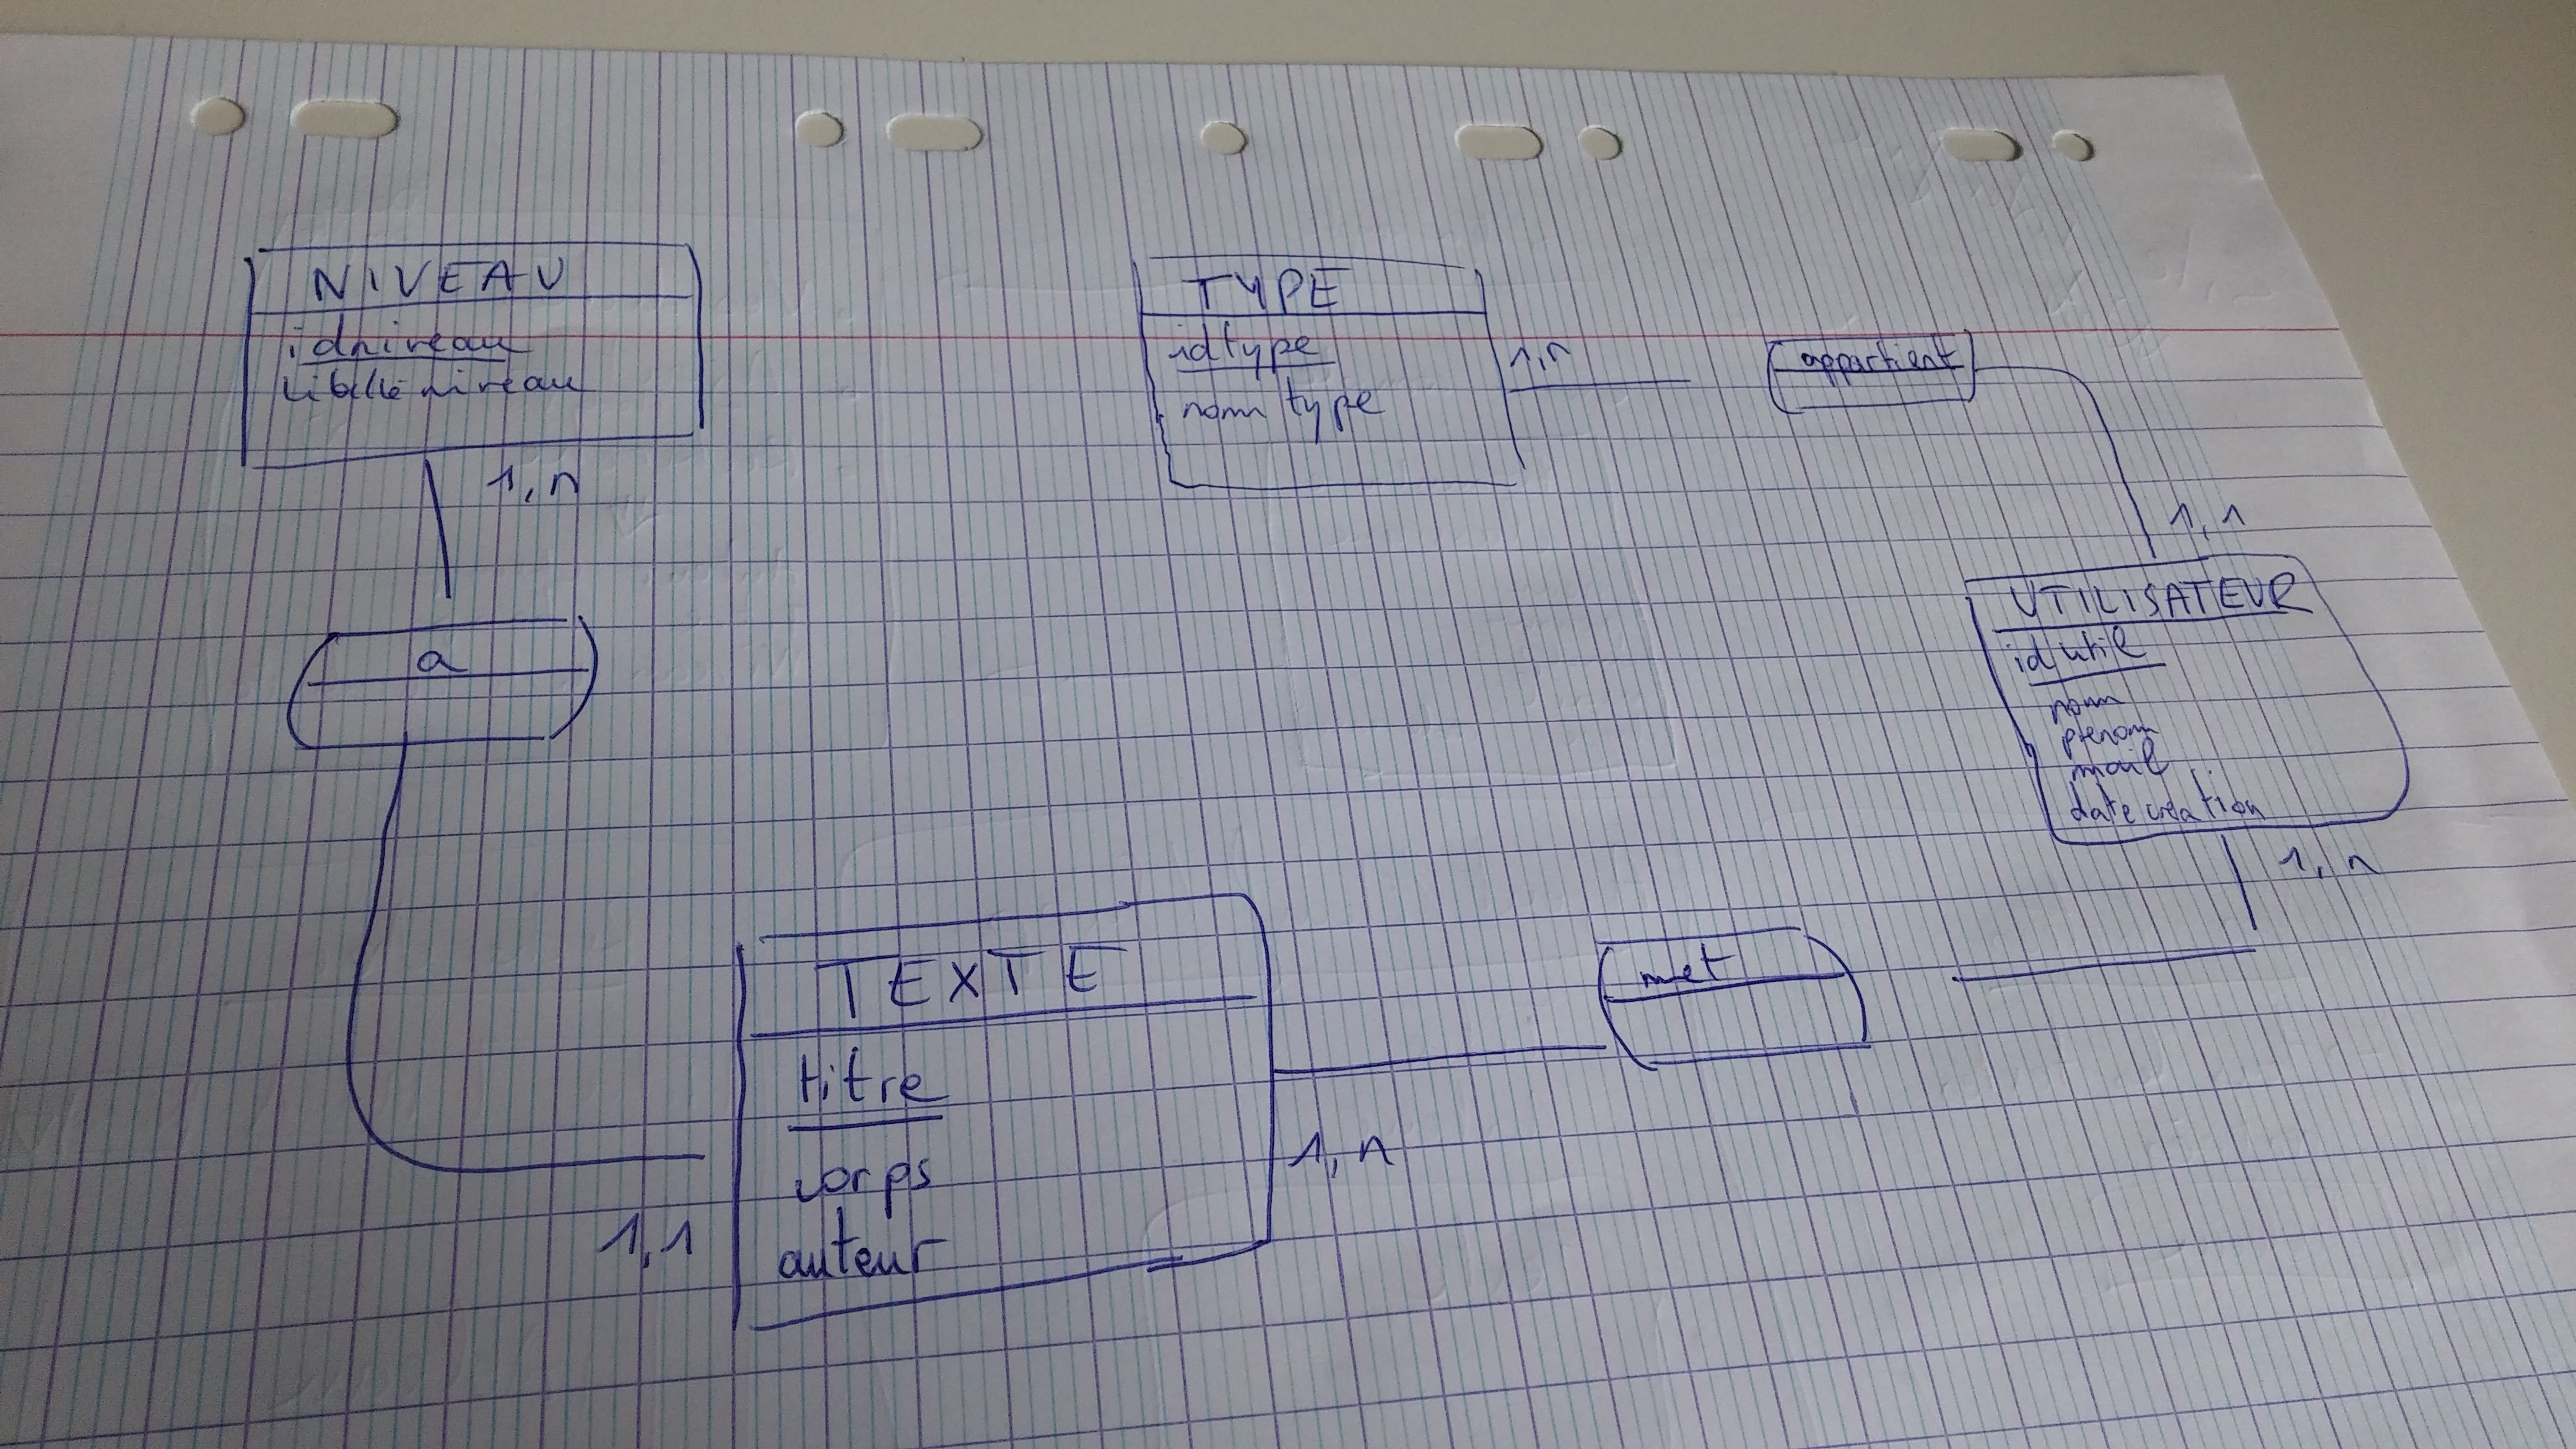 NIVEAU
idniveau
libelléniveau
1,n
a
1,1
TYPE
idtype
nom type
1,n
appartient
1,1
UTILISATEUR
id util
nom
prenom
mail
date création
1,n
met
1,n
TEXTE
titre
corps
auteur